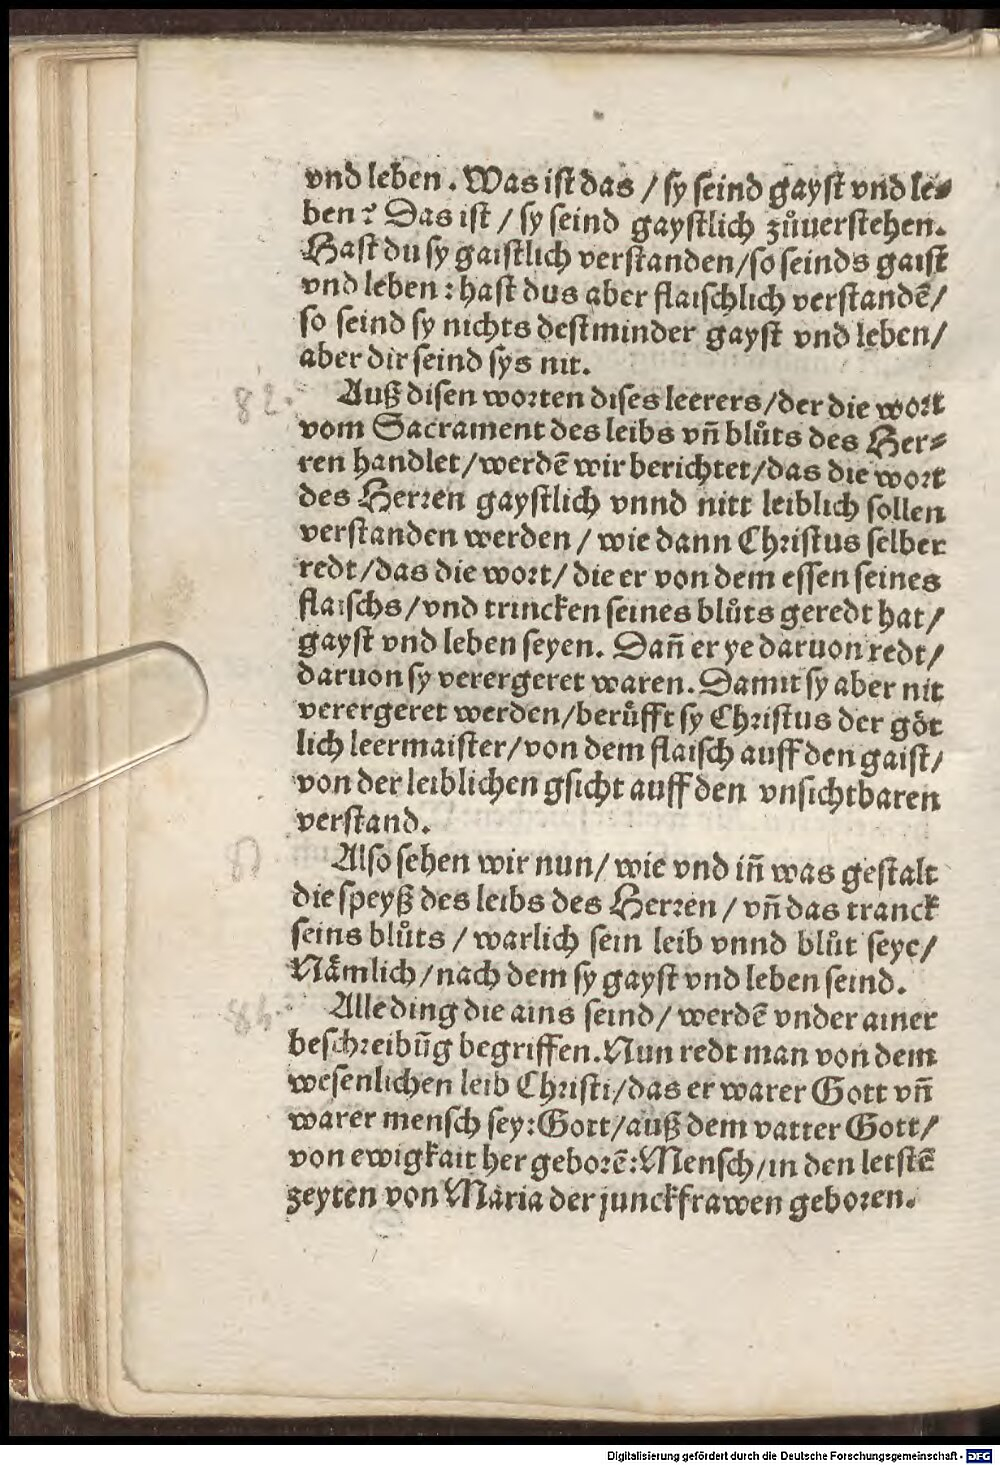 vnd leben. Was ist das / sy seind gayst vnd le⸗
ben? Das ist / sy seind gaystlich zůuerstehen.
Hast du sy gaistlich verstanden/so seinds gaist
vnd leben: hast dus aber flaischlich verstandē/
so seind sy nichts destminder gayst vnd leben/
aber dir seind sys nit.
82.
Auß disen worten dises leerers/der die wort
vom Sacrament des leibs vn̄ blůts des Her⸗
ren handlet/werdē wir berichtet/das die wort
des Herren gaystlich vnnd nitt leiblich sollen
verstanden werden / wie dann Christus selber
redt/das die wort/ die er von dem essen seines
flaischs/vnd trincken seines blůts geredt hat/
gayst vnd leben seyen. Dan̄ er ye daruon redt/
daruon sy verergeret waren. Damit sy aber nit
verergeret werden/berůfft sy Christus der göt
lich leermaister/von dem flaisch auff den gaist/
von der leiblichen gsicht auff den vnsichtbaren
verstand.
Also sehen wir nun/ wie vnd in̄ was gestalt
die speyß des leibs des Herren / vn̄ das tranck
seins blůts / warlich sein leib vnnd blůt seye/
Nämlich/nach dem sy gayst vnd leben seind.
Alle ding die ains seind/ werdē vnder ainer
beschreibūg begriffen. Nun redt man von dem
wesenlichen leib Christi/das er warer Gott vn̄
warer mensch sey: Gott/auß dem vatter Gott/
von ewigkait her geborē: Mensch/in den letstē
zeyten von Maria der junckfrawen geboren.
Digitalisierung gefördert durch die Deutsche Forschungsgemeinschaft - DFG